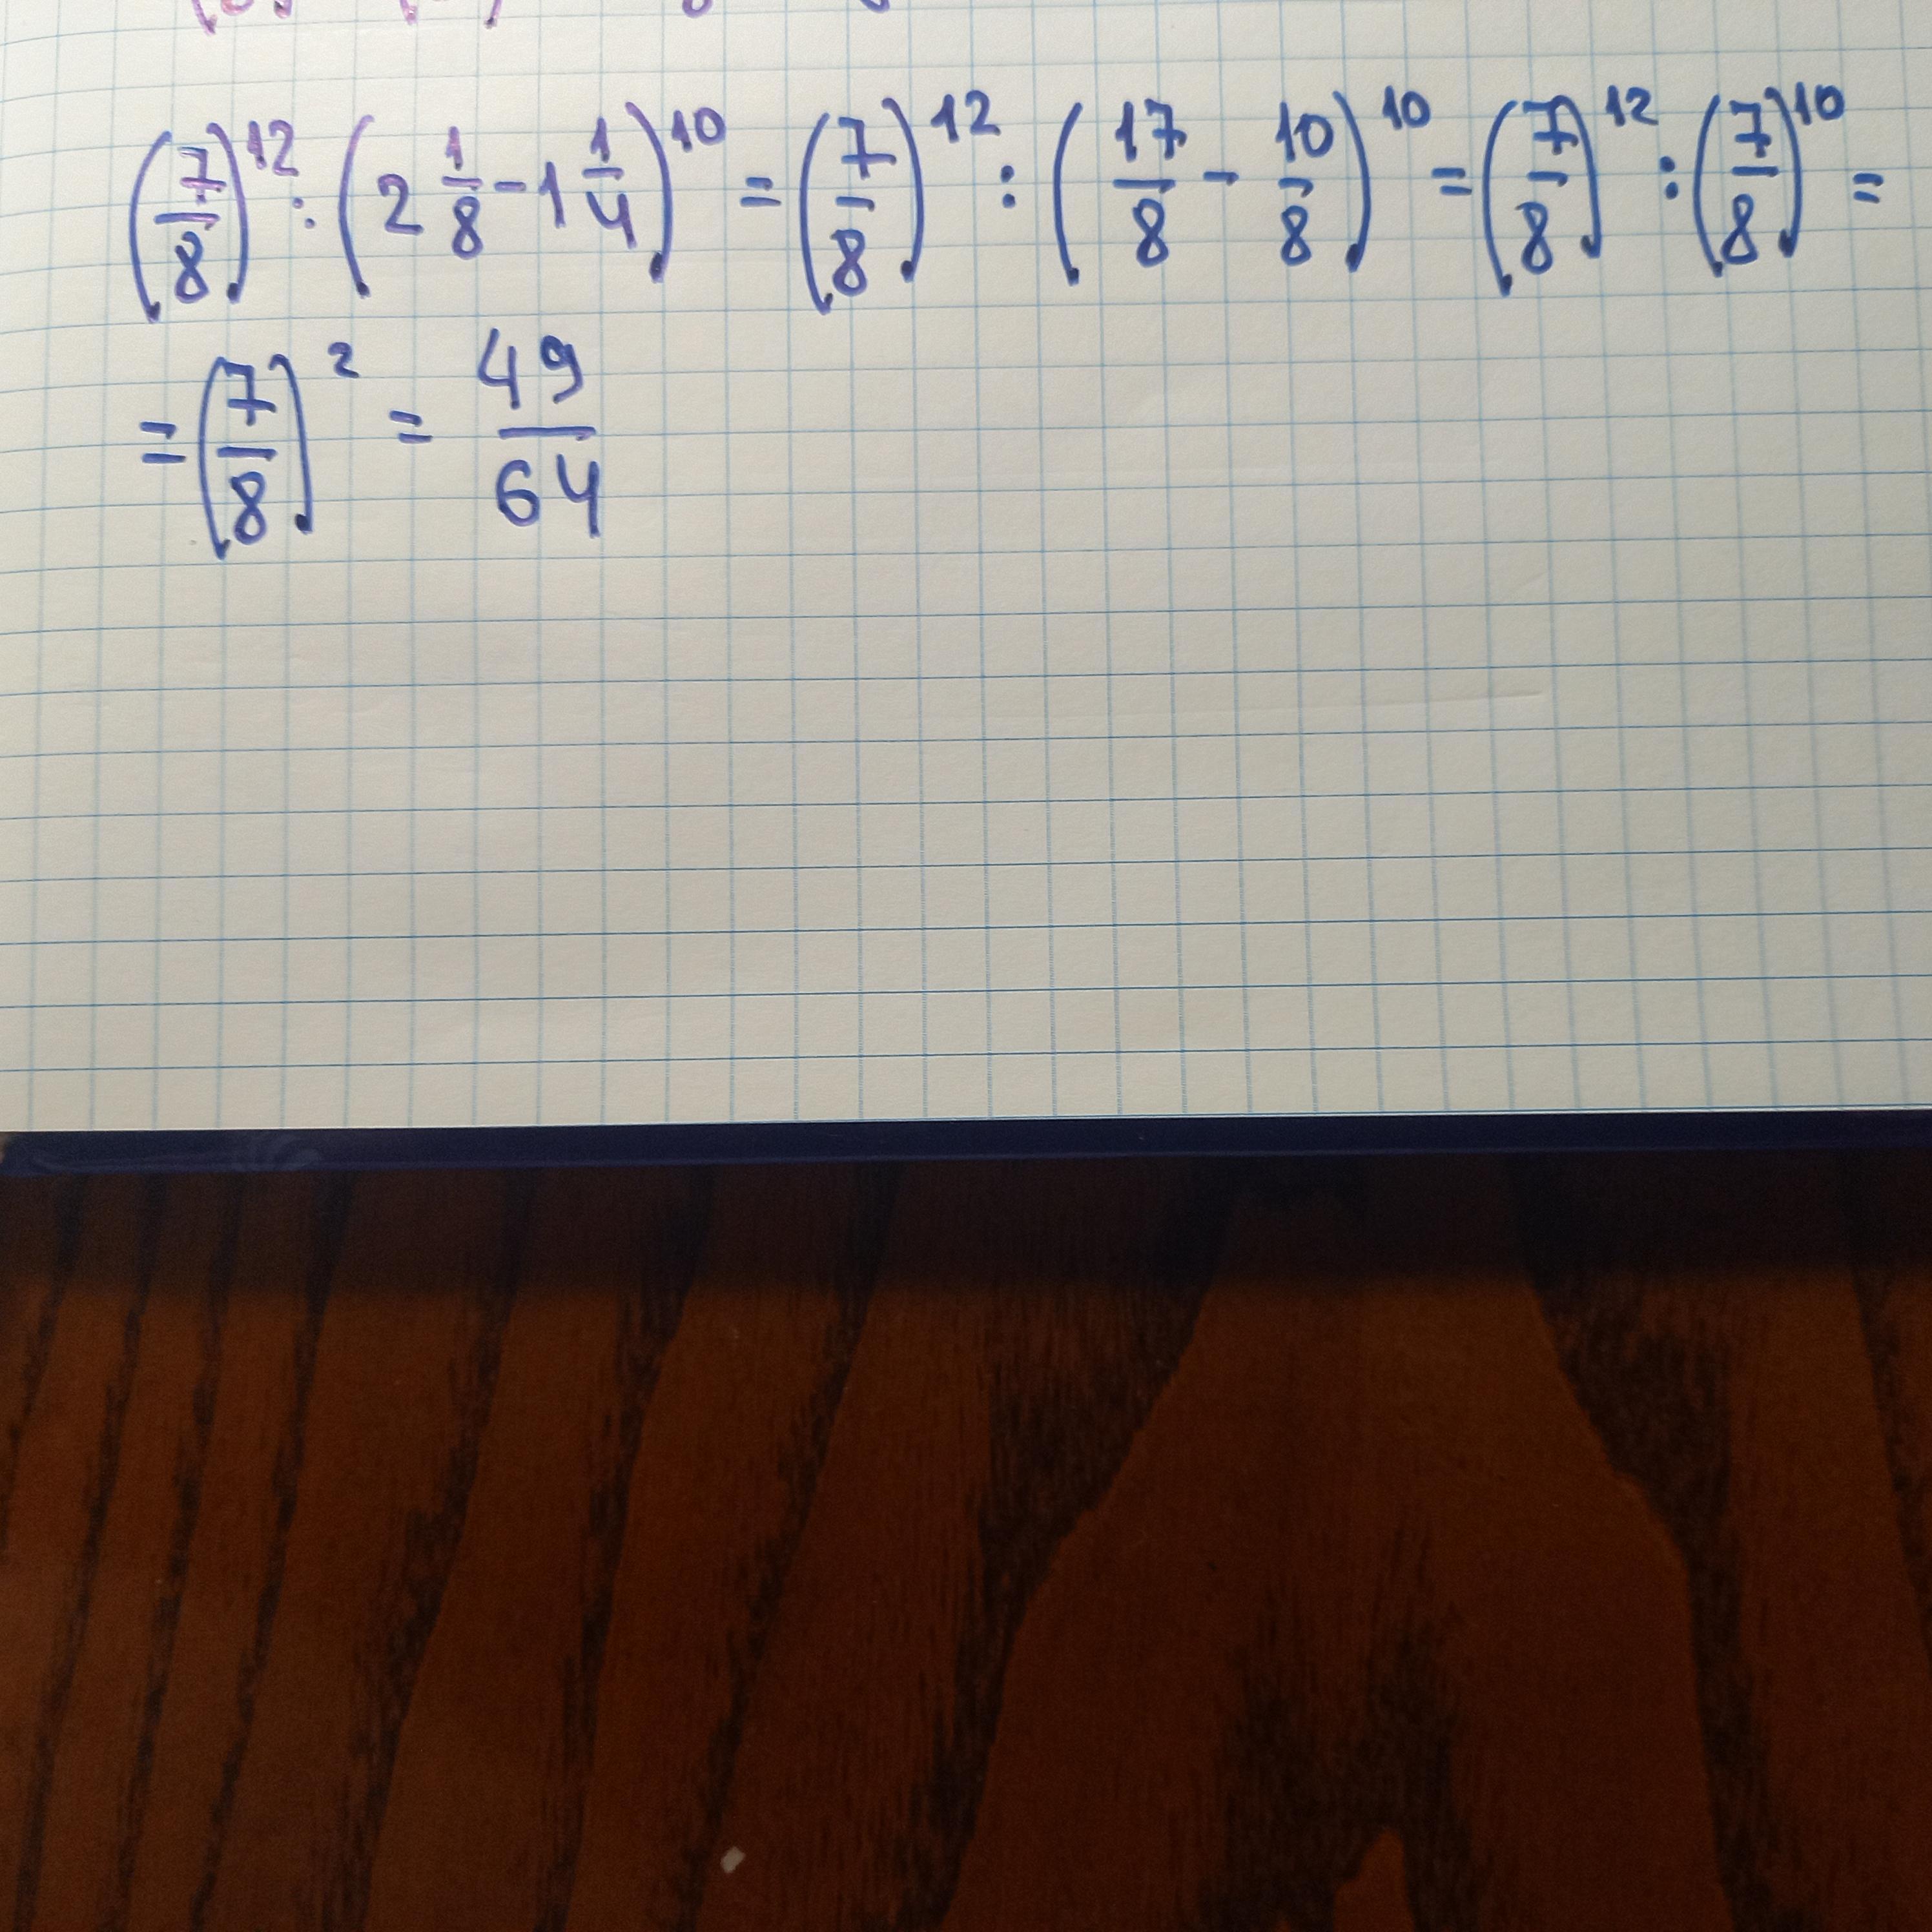 (7/8)^12 : (2 1/8 - 1 1/4)^10 = (7/8)^12 : (17/8 - 10/8)^10 = (7/8)^12 : (7/8)^10 =
= (7/8)^2 = 49/64